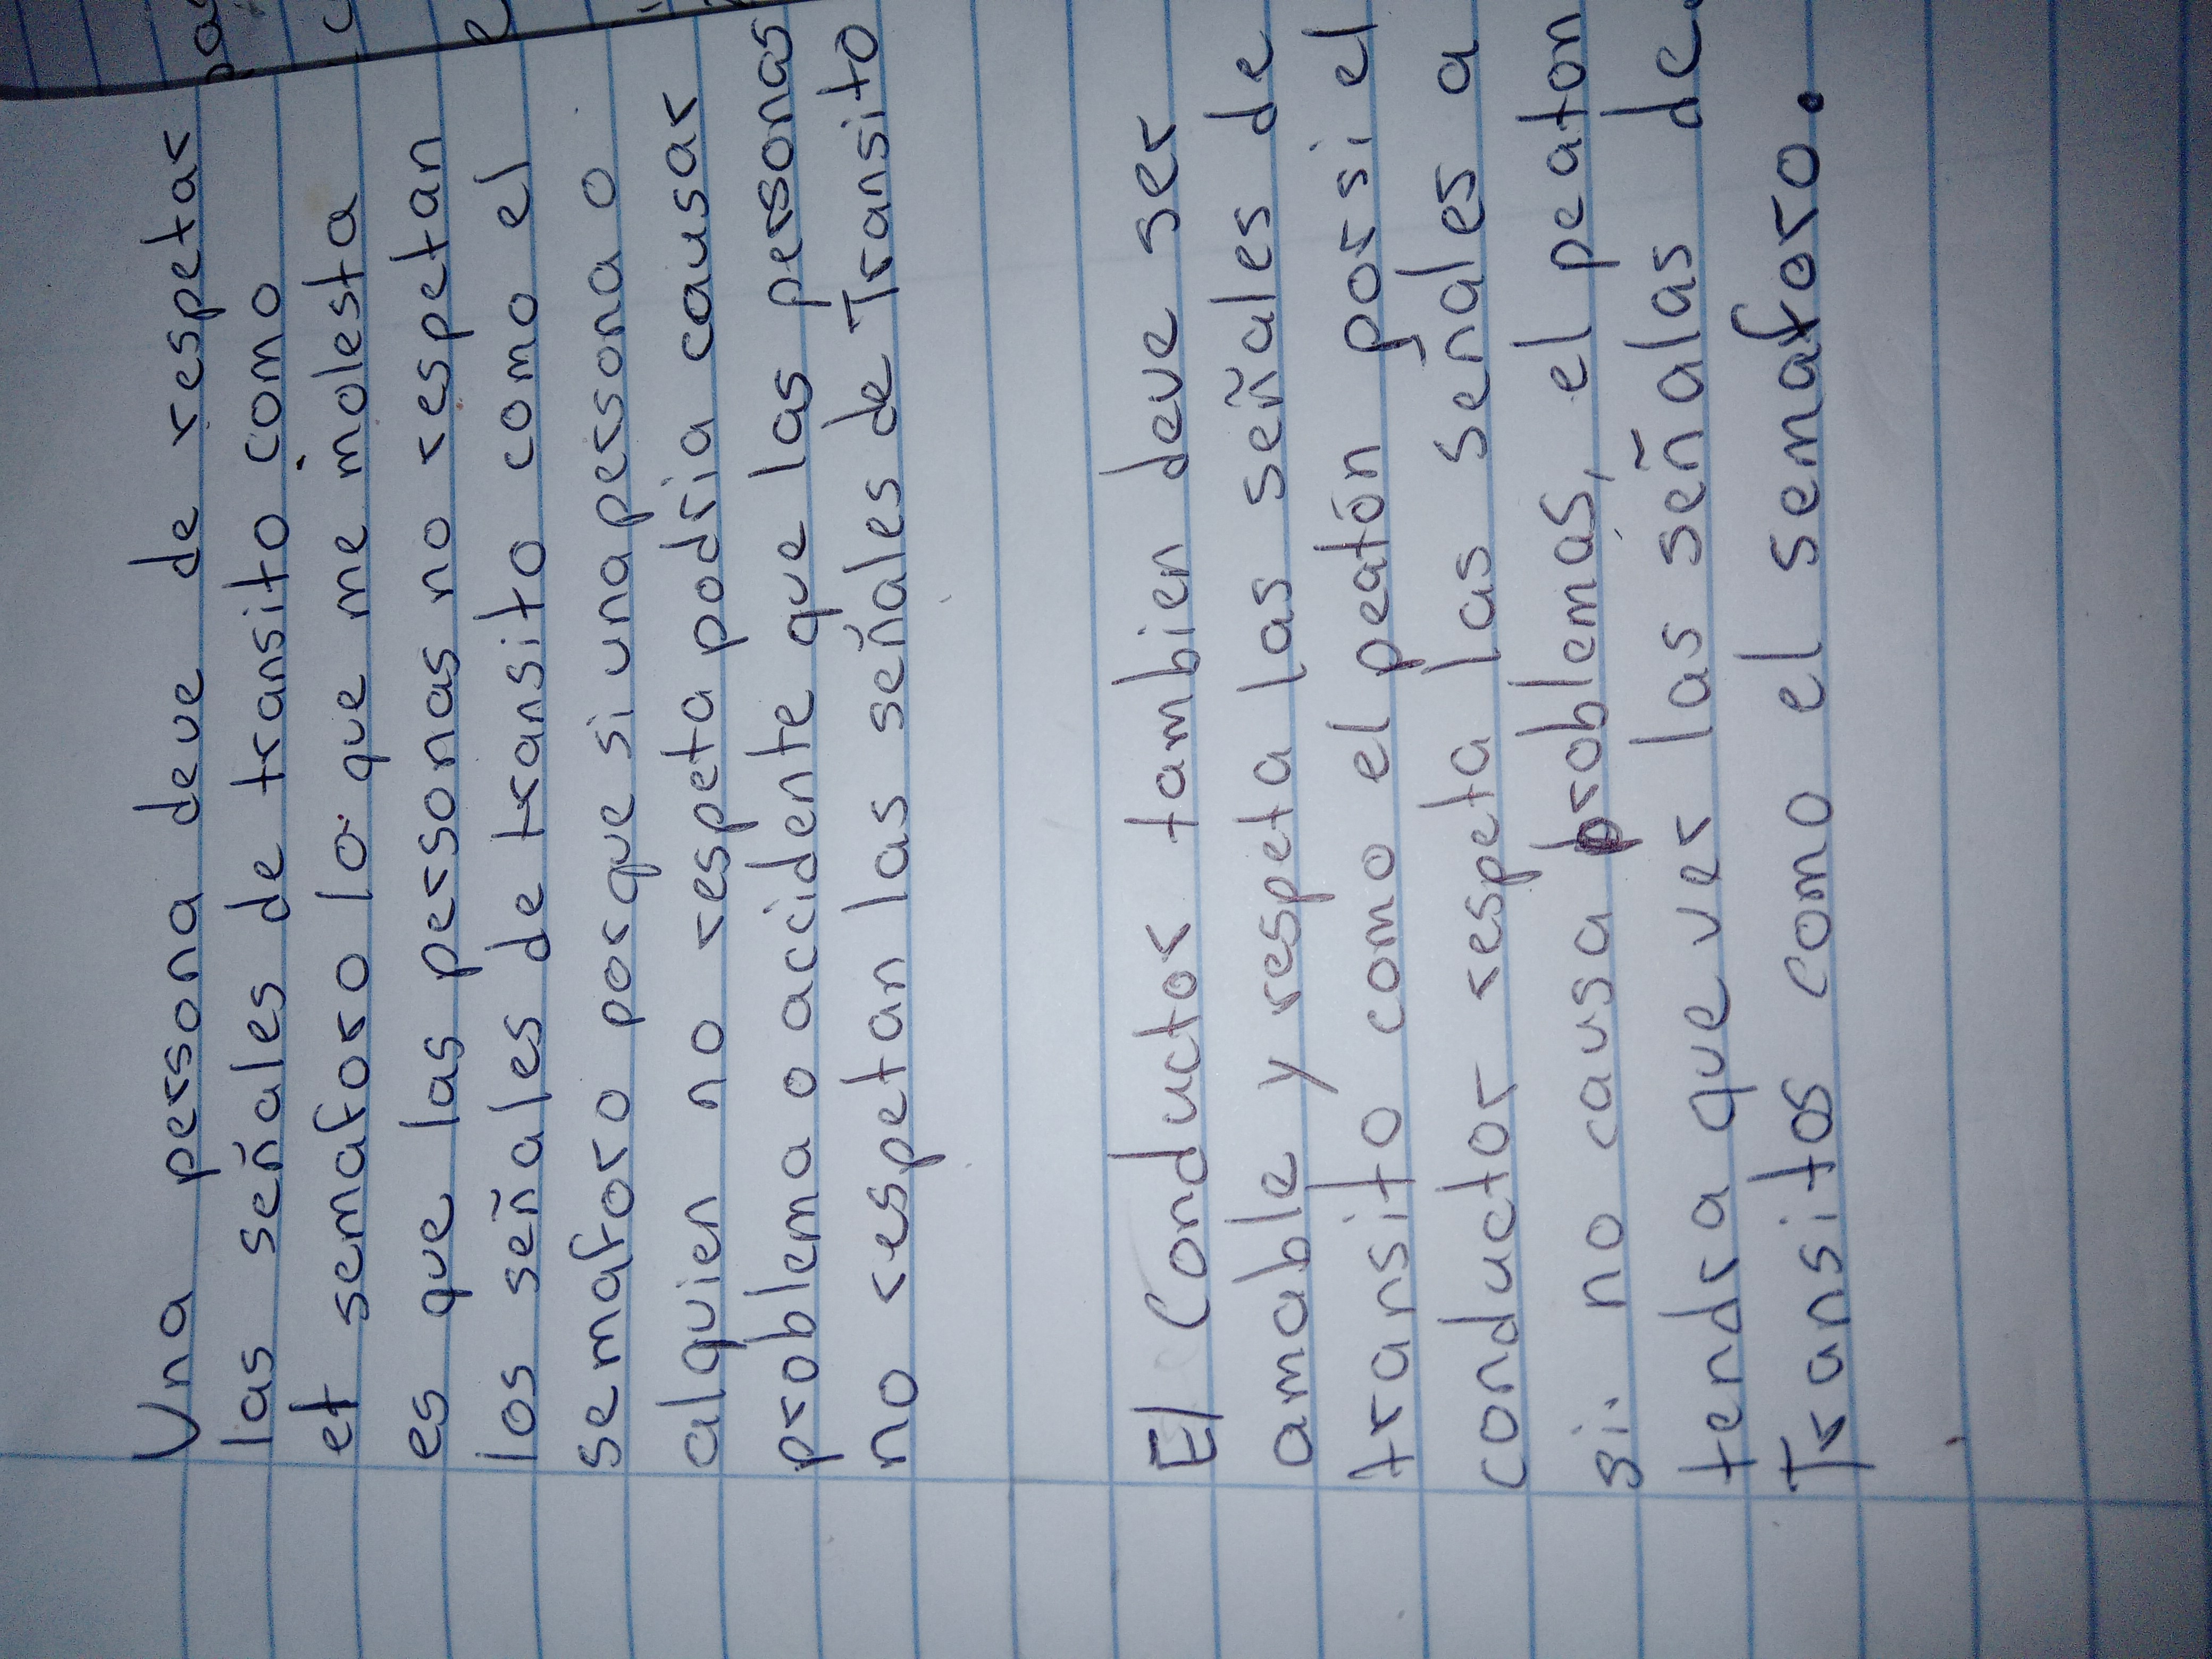 Una persona deve de respetar
las señales de transito como
el semaforo lo que me molesta
es que las personas no respetan
los señales de transito como el
semaforo porque si una persona o
alquien no respeta podria causar
problema o accidente que las personas
no respetan las señales de Transito
El Conductor tambien deve ser
amable y respeta las señales de
transito como el peatón porsi el
conductor respeta las señales a
si. no causa problemas, el peaton
tendra que ver las señalas de
Transitos como el semaforo.